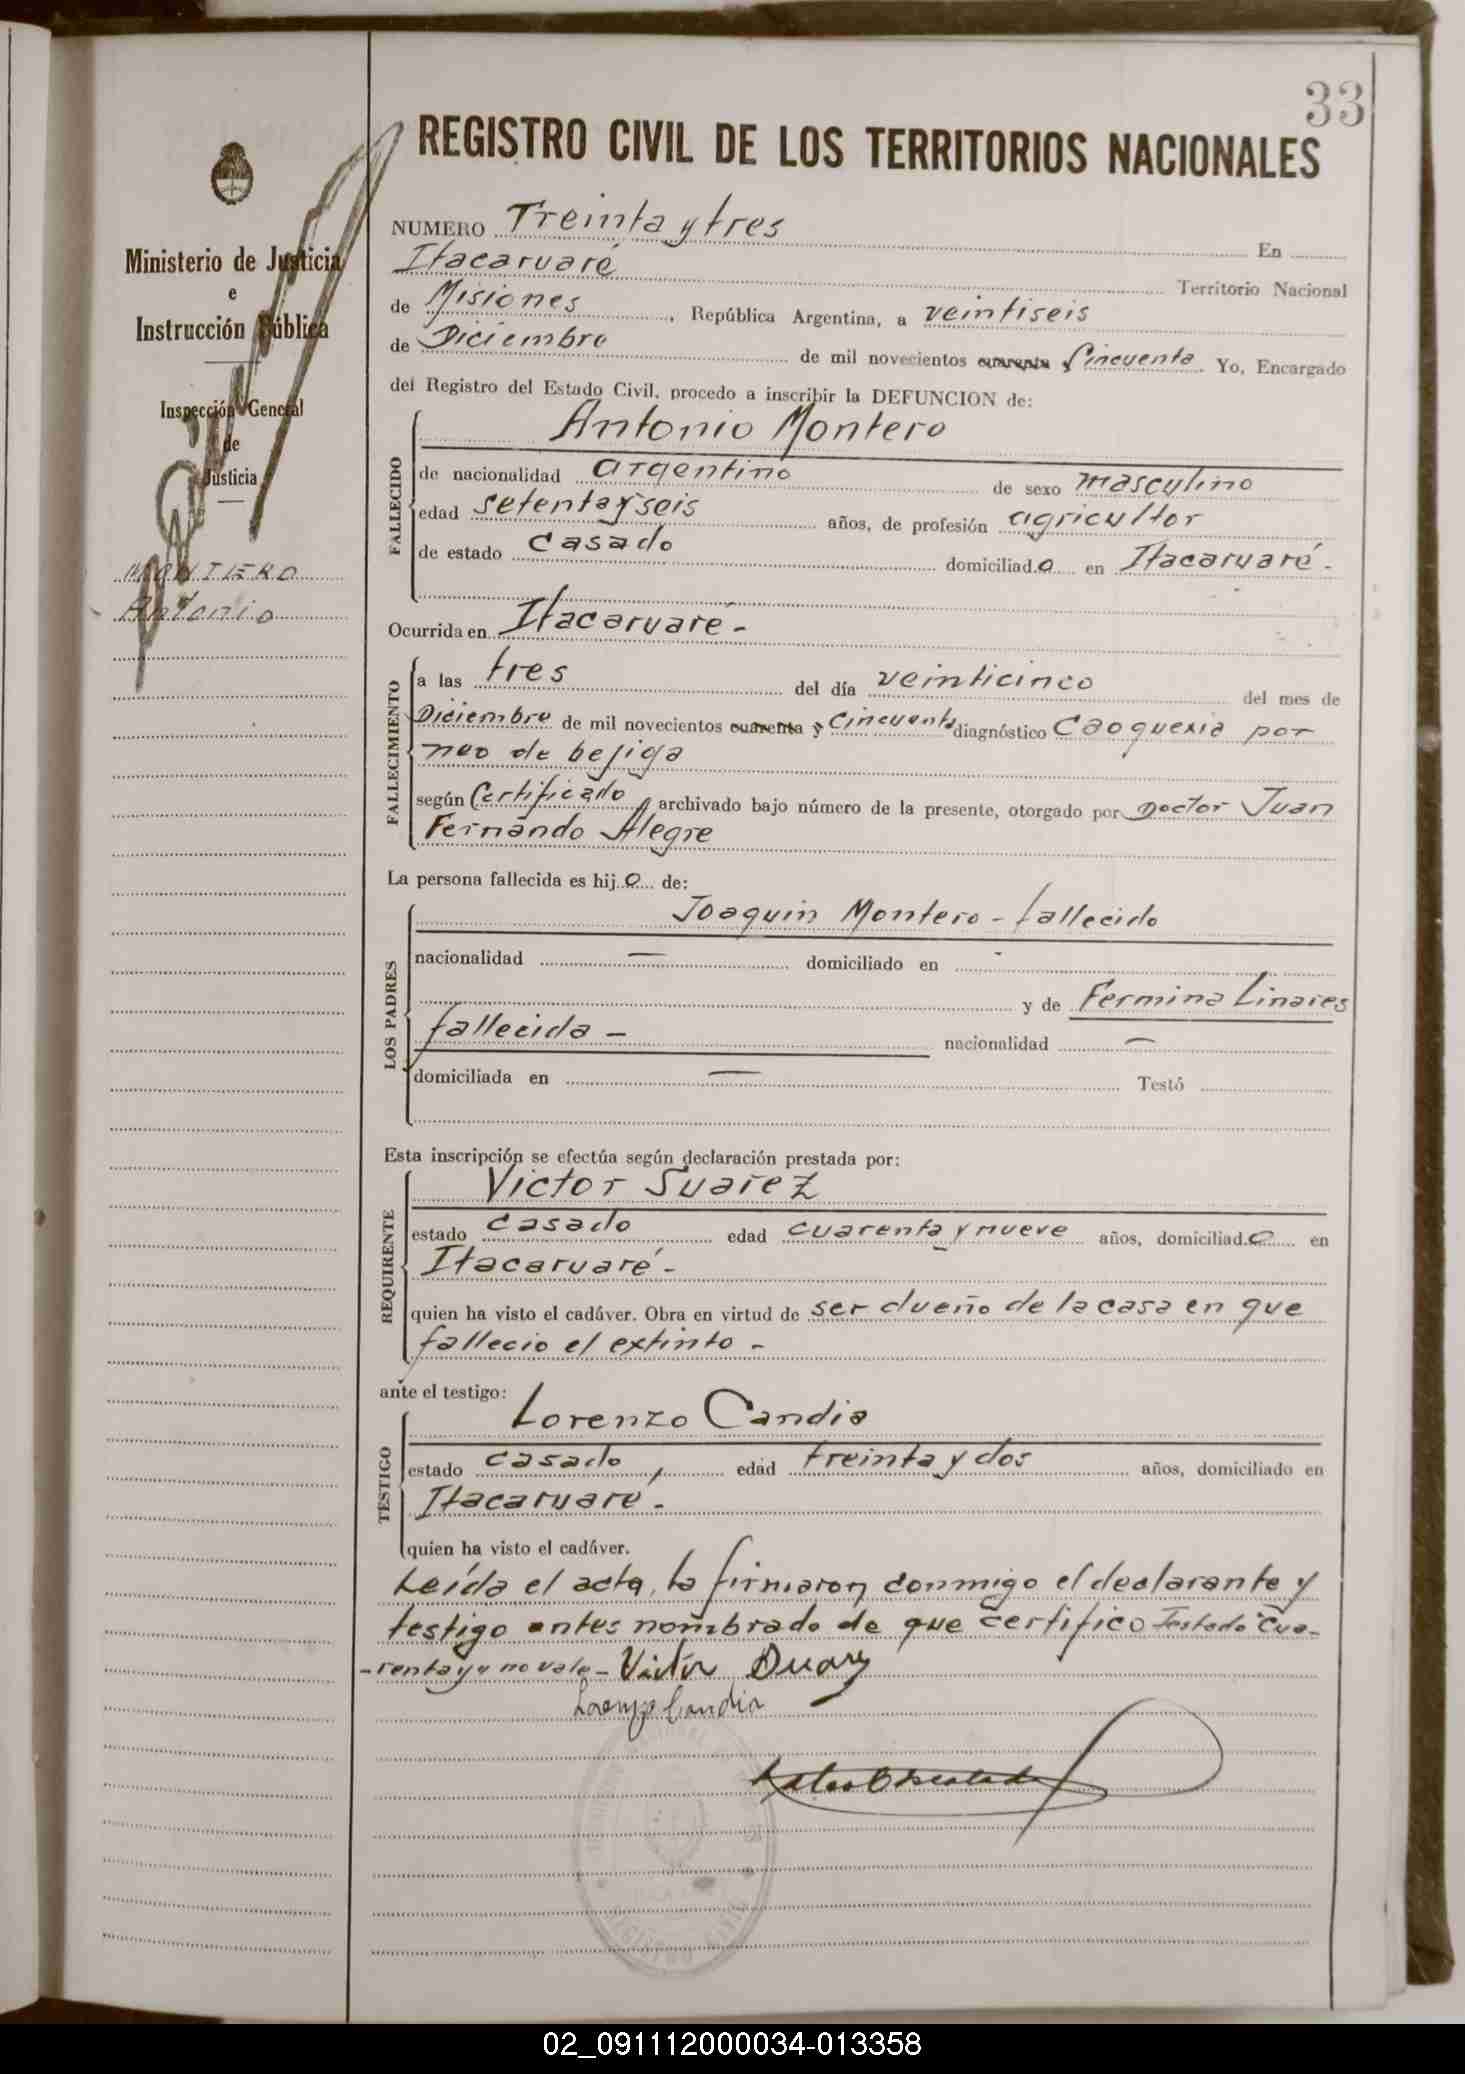 33
REGISTRO CIVIL DE LOS TERRITORIOS NACIONALES
Ministerio de Justicia
e
Instrucción Pública
Inspección General
de
Justicia
MONTERO
Antonio
NUMERO Treinta y tres En
Itacaruaré Territorio Nacional
de Misiones, República Argentina, a veintiseis
de Diciembre de mil novecientos cuarenta y Cincuenta. Yo, Encargado
del Registro del Estado Civil, procedo a inscribir la DEFUNCION de:
FALLECIDO
Antonio Montero
de nacionalidad argentino de sexo masculino
edad setenta y seis años, de profesión agricultor
de estado casado domiciliado en Itacaruaré.
Ocurrida en Itacaruaré -
FALLECIMIENTO
a las tres del día veinticinco del mes de
Diciembre de mil novecientos cuarenta y Cincuenta diagnóstico Caoquexia por
neo de bejiga
según Certificado, archivado bajo número de la presente, otorgado por Doctor Juan
Fernando Alegre
La persona fallecida es hijo de:
LOS PADRES
Joaquin Montero - fallecido
nacionalidad — domiciliado en -
y de Fermina Linares
fallecida - nacionalidad —
domiciliada en — Testó
Esta inscripción se efectúa según declaración prestada por:
REQUIRENTE
Victor Suarez
estado casado edad cuarenta y nueve años, domiciliado en
Itacaruaré -
quien ha visto el cadáver. Obra en virtud de ser dueño de la casa en que
fallecio el extinto -
ante el testigo:
TESTIGO
Lorenzo Candia
estado casado, edad treinta y dos años, domiciliado en
Itacaruaré.
quien ha visto el cadáver.
Leída el acta, la firmaron conmigo el declarante y
testigo antes nombrado de que certifico Testado "Cua-
-renta y" no vale - Victor Suarez
Lorenzo Candia
02_091112000034-013358